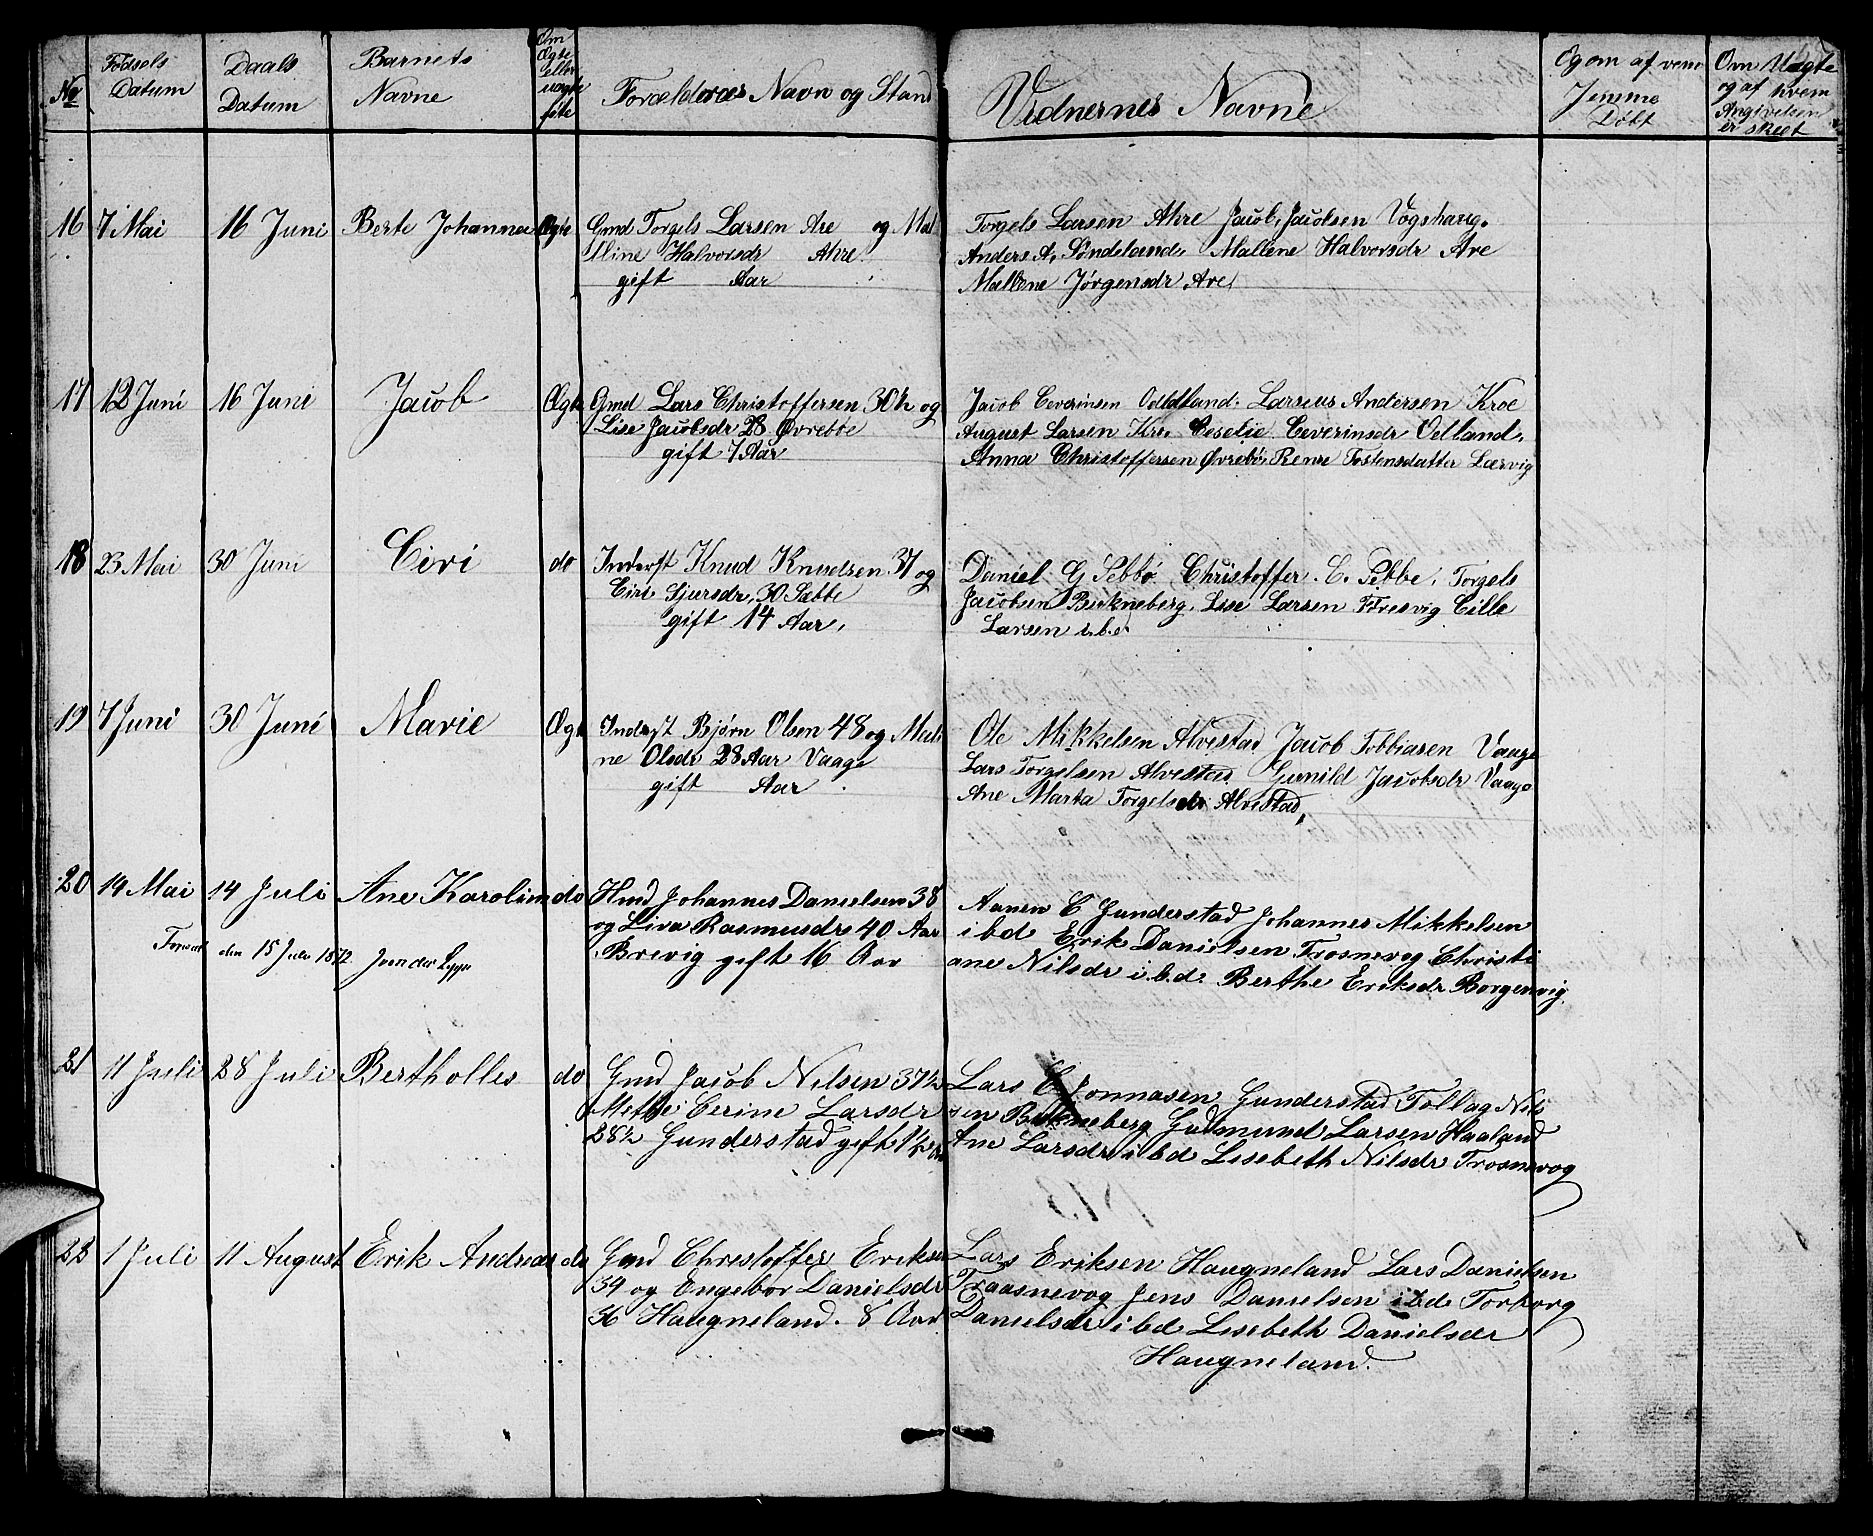 No
Fødsels
Datum
Daabs
Datum
Barnets
Navne
Om
Ægte
eller
uægte
føte
Forældrees Navn og Stand
Vidnernes Navne
Og om af vem
Jemme
Døbt
Om Uægte
og af hvem
Angivelsen
er skeet
16 7 Mai 16 Juni Berte Johanna Ægte
Gmd Torgels Larsen Are og Mal
line Halvorsdr Ahre
gift Aar
Torgels Larsen Ahre Jacob Jacobsen Vogshaug.
Anders A. Søndeland. Mallene Halvorsdr Are
Mallene Jørgensdr Are
17 12 Juni 16 Juni Jacob Ægte
Gmd Lars Christoffersen 30½ og
Lise Jacobsdr 28 Øvrebøe
gift 7 Aar
Jacob Ceverinsen Larsius Andersen Kroe
August Larsen Kro. Ceselie Ceverinsdr Velland.
Anna Christoffersen Øvrebø, Rense Tostensdatter Lærvig
18 23 Mai 30 Juni Ciri do
Inderst Knud Knudsen 37 og
Ciri Sjursdr, 30 Sæbbe
gift 14 Aar,
Daniel G Sebbø Christoffer C. Sebbe, Torgels
Jacobsen Birkneberg, Lise Larsen Fresvig Cille
Larsen i.b.e.
19 7 Juni 30 Juni Marie Ægte
Inderst Bjørn Olsen 48 og Mali
ne Olsdr 28 Aar Vaage
gift Aar
Ole Mikkelsen Alvestad Jacob Tobbiasen Vaage
Lars Torgelsen Alvestad Gunild Jacobsdr Vaage
Ane Marta Torgelsdr Alvestad,
20 14 Mai 14 Juli Ane Karolin do
den 15 Juli 1872
Hmd Johannes Danielsen 38
og Liva Rasmusdr 40 Aar
Brevig gift 16 Aar
Aanen C Gunderstad Johannes Mikkelsen
ibd Erik Danielsen Trosnevog Christi
ane Nilsdr i.b.d. Berthe Eriksdr Borgenvig.
21 11 Juli 28 Juli Bertholles do
Gmd Jacob Nilsen 37½
Mette Cerine Larsdr
28½ Gunderstad gift 1½ Aar
Lars C Jonnasen Gunderstad Tollag Nils
sen Birkneberg Gudmund Larsen Haaland
Ane Larsdr ibd Lisebeth Nilsdr Trosnevog
22 1 Juli 11 August Erik Andreas do
Gmd Chrestoffer Eriksen
34 og Engebor Danielsdr
36 Haugneland. 8 Aar
Lars Eriksen Haugneland Lars Danielsen
Traasnevog Jens Danielsen ibd Torborg
Danielsdr ibd Lisebeth Danielsdr
Haugneland.